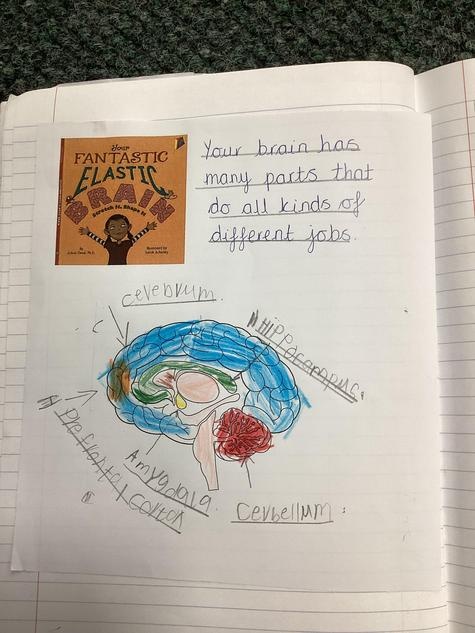 Your
FANTASTIC
ELASTIC
BRAIN
Stretch It, Shape It
Your brain has
many parts that
do all kinds of
different jobs.
cerebrum.
C
Hippocampus.
Amygdala.
Prefrontal Cortex
Cerbellum.